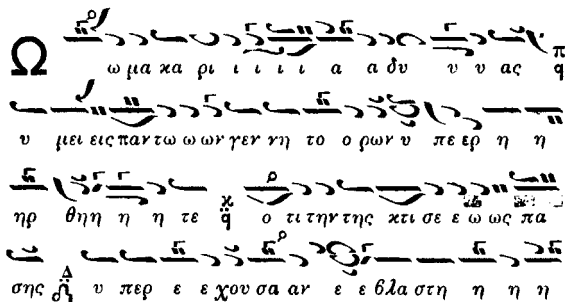 Ω ω μα κα ρι ι ι ι ι α α δυ υ υ ας π q
υ μει εις παν τω ω ων γεν νη το ο ρων υ πε ερ η η
ηρ θη η η η τε χ q ο τι την της κτι σε ε ω ως πα
σης Δ υ περ ε ε χου σα αν ε ε βλα στη η η η